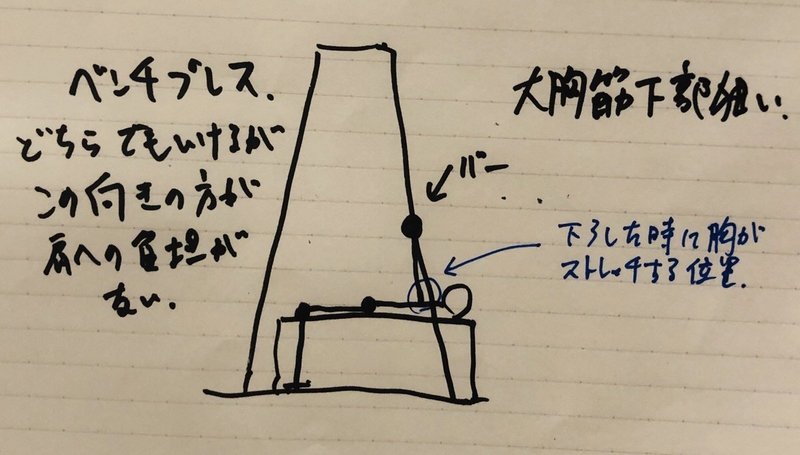 ベンチプレス.
どちらでもいけるが
この向きの方が
肩への負担が
ない.
大胸筋下部狙い.
バー
下ろした時に胸が
ストレッチする位置.